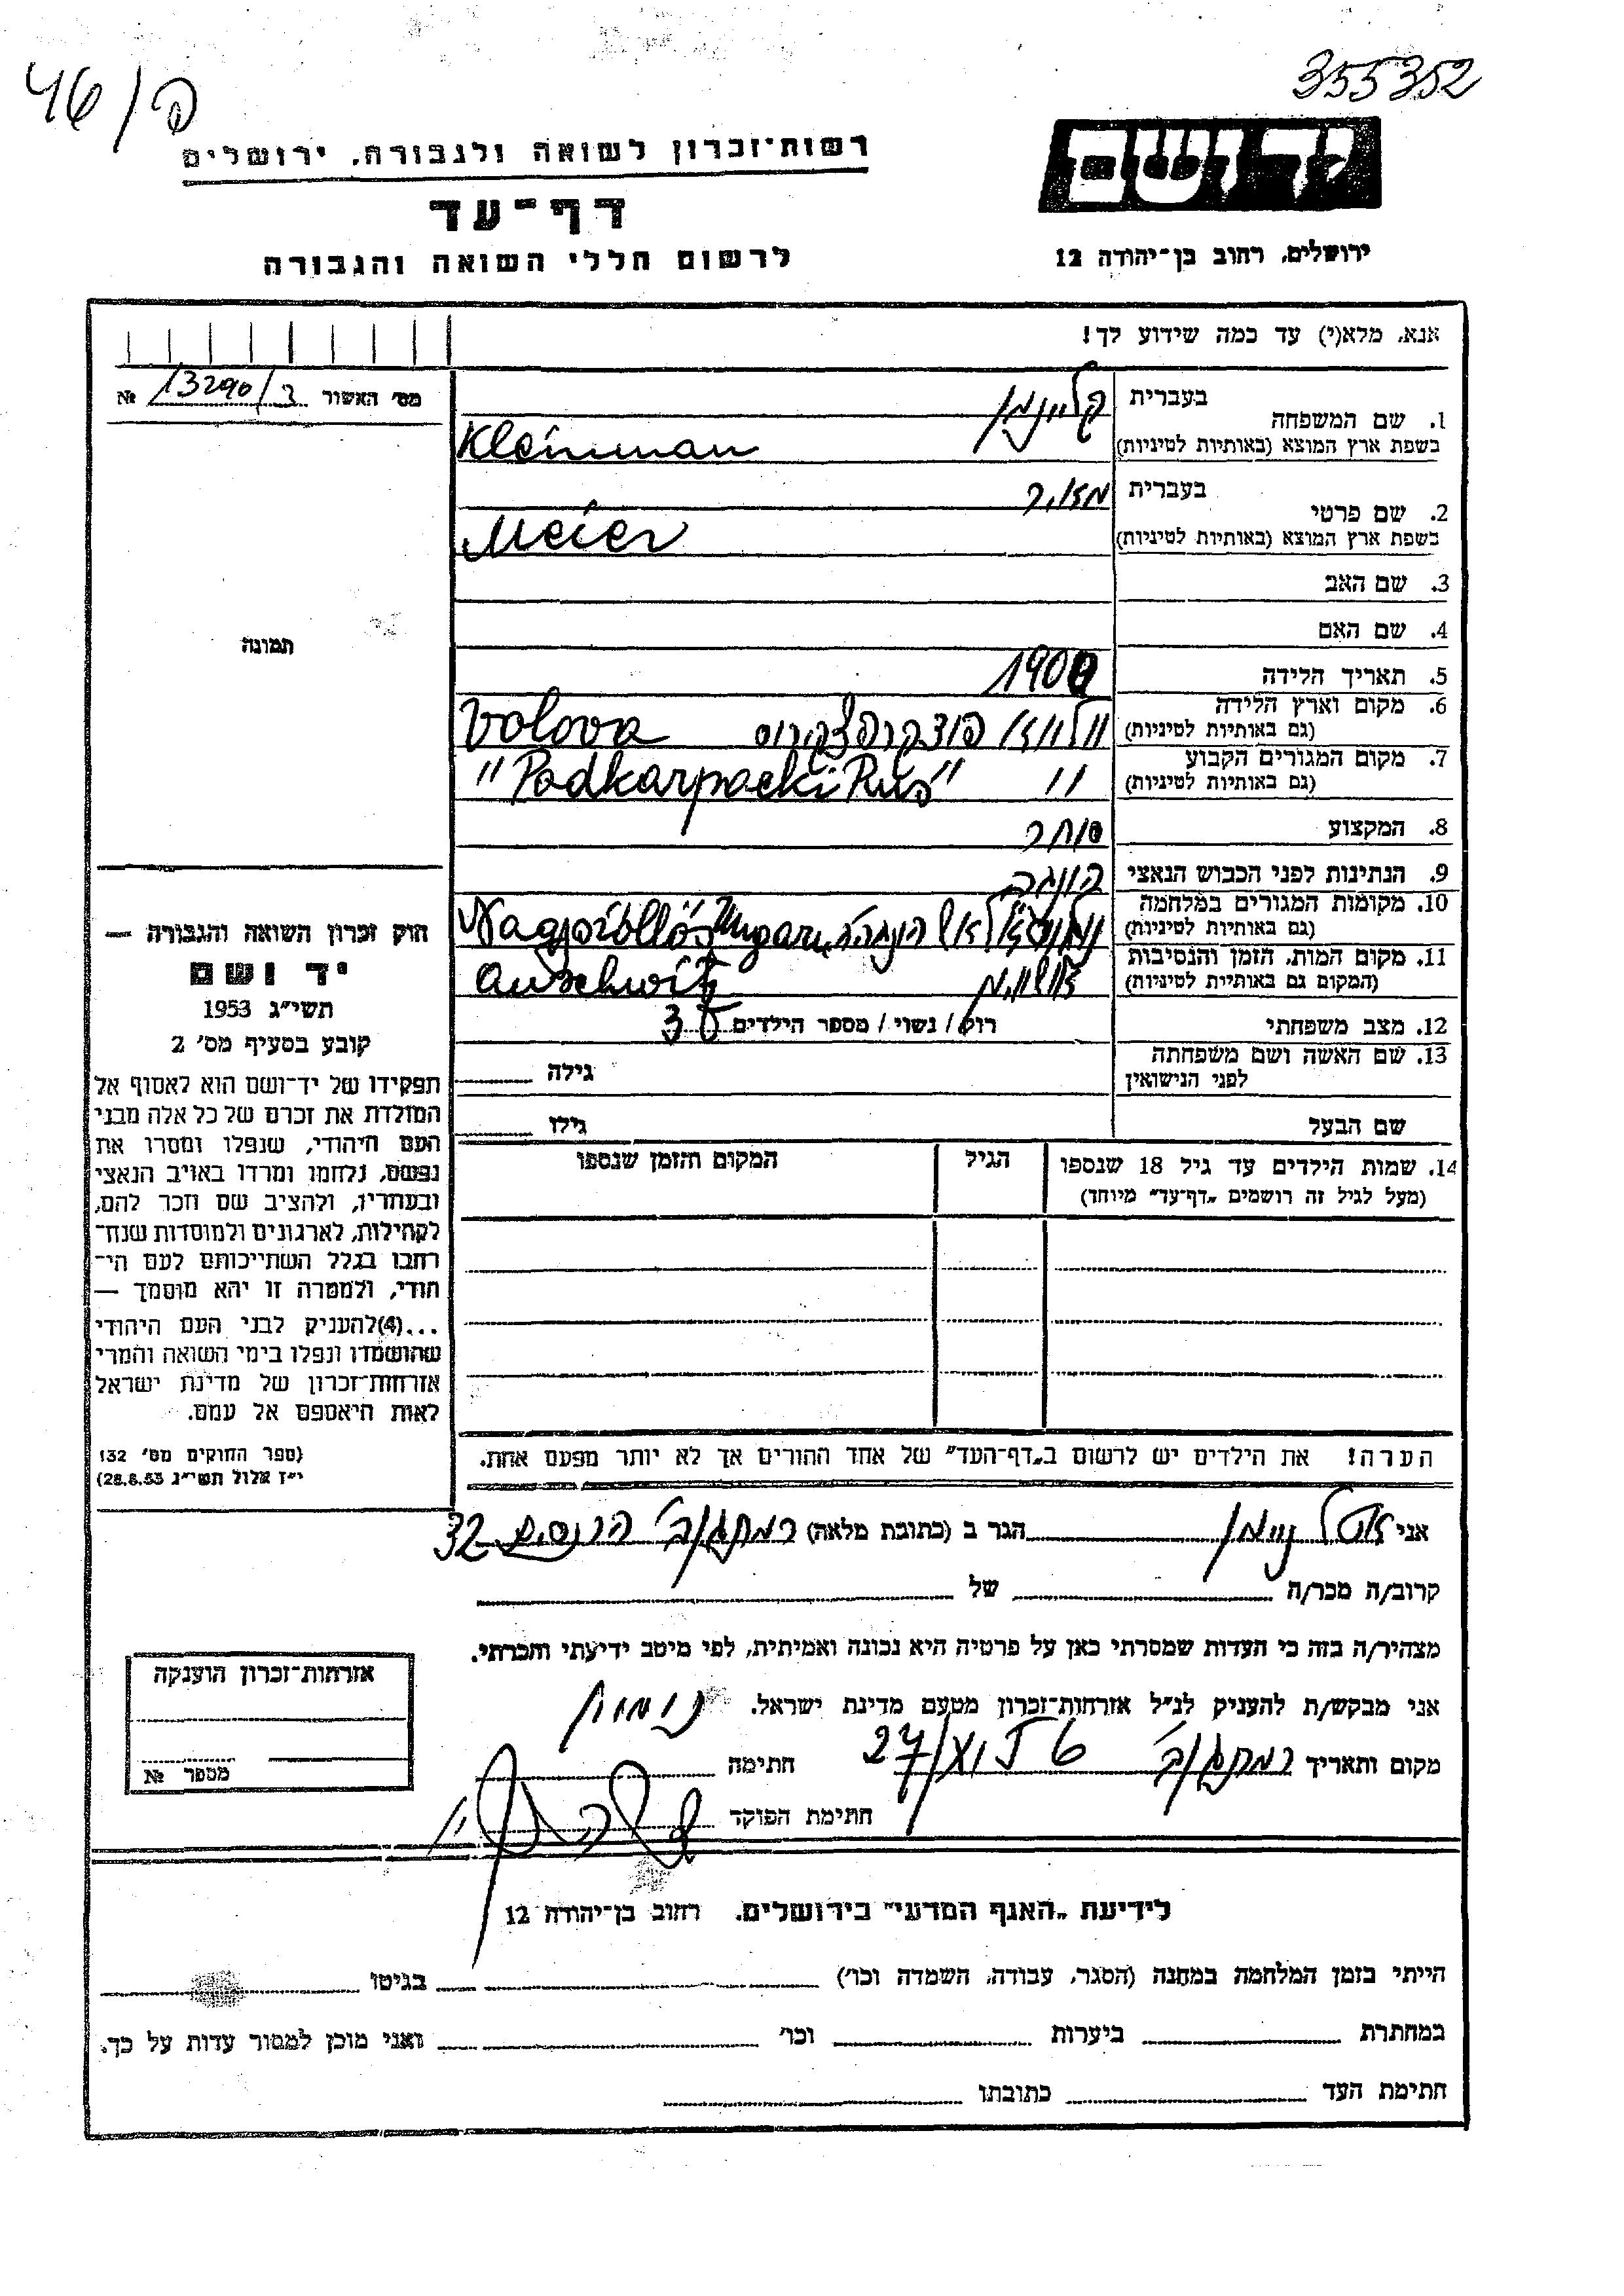 355352
46/פ
יד ושם
רשות־זכרון לשואה ולגבורה, ירושלים
דף־עד
לרשום חללי השואה והגבורה
ירושלים, רחוב בן־יהודה 12
אנא, מלא(י) עד כמה שידוע לך!
מס׳ האשור 13290/ №
1. שם המשפחה בעברית קליינמן
בשפת ארץ המוצא (באותיות לטיניות) Kleinman
2. שם פרטי בעברית מאיר
בשפת ארץ המוצא (באותיות לטיניות) Meier
3. שם האב
4. שם האם
5. תאריך הלידה 1900
6. מקום וארץ הלידה
(גם באותיות לטיניות) Volova
7. מקום המגורים הקבוע " "Podkarpacki Rus"
(גם באותיות לטיניות)
8. המקצוע סוחר
9. הנתינות לפני הכבוש הנאצי הונגר׳
10. מקומות המגורים במלחמה
(גם באותיות לטיניות) Nagyszöllös Ungaru
11. מקום המות, הזמן והנסיבות
(המקום גם באותיית לטיניות) אושויץ Auschwitz
12. מצב משפחתי רוק/ נשוי/ מספר הילדים
13. שם האשה ושם משפחתה גילה
לפני הנישואין
שם הבעל גילו
14. שמות הילדים עד גיל 18 שנספו הגיל המקום והזמן שנספו
(מעל לגיל זה רושמים „דף־עד״ מיוחד)
הערה! את הילדים יש לרשום ב„דף־העד״ של אחד ההורים אך לא יותר מפעם אחת.
תמונה
חוק זכרון השואה והגבורה —
יד ושם
תשי״ג 1953
קובע בסעיף מס׳ 2
תפקידו של יד־ושם הוא לאסוף אל
המולדת את זכרם של כל אלה מבני
העם היהודי, שנפלו ומסרו את
נפשם, נלחמו ומרדו באויב הנאצי
ובעוזריו, ולהציב שם וזכר להם,
לקהילות, לארגונים ולמוסדות שנח־
רבו בגלל השתייכותם לעם הי־
הודי, ולמטרה זו יהא מוסמך —
...(4)להעניק לבני העם היהודי
שהושמדו ונפלו בימי השואה והמרי
אזרחות־זכרון של מדינת ישראל
לאות היאספם אל עמם.
(ספר החוקים מס׳ 132
י״ז אלול תשי״ג 28.8.53)
אני ניימן הגר ב (כתובת מלאה) רמת גן 32
קרוב/ה מכר/ה של
מצהיר/ה בזה כי העדות שמסרתי כאן על פרטיה היא נכונה ואמיתית, לפי מיטב ידיעתי והכרתי.
אני מבקש/ת להעניק לנ״ל אזרחות־זכרון מטעם מדינת ישראל.
מקום ותאריך רמת גן חתימה
חתימת הפוקד
אזרחות־זכרון הוענקה
מספר №
לידיעת „האגף המדעי״ בירושלים. רחוב בן־יהודה 12
הייתי בזמן המלחמה במחנה (הסגר, עבודה, השמדה וכו׳) בגיטו
במחתרת ביערות וכו׳ ואני מוכן למסור עדות על כך.
חתימת העד כתובתו